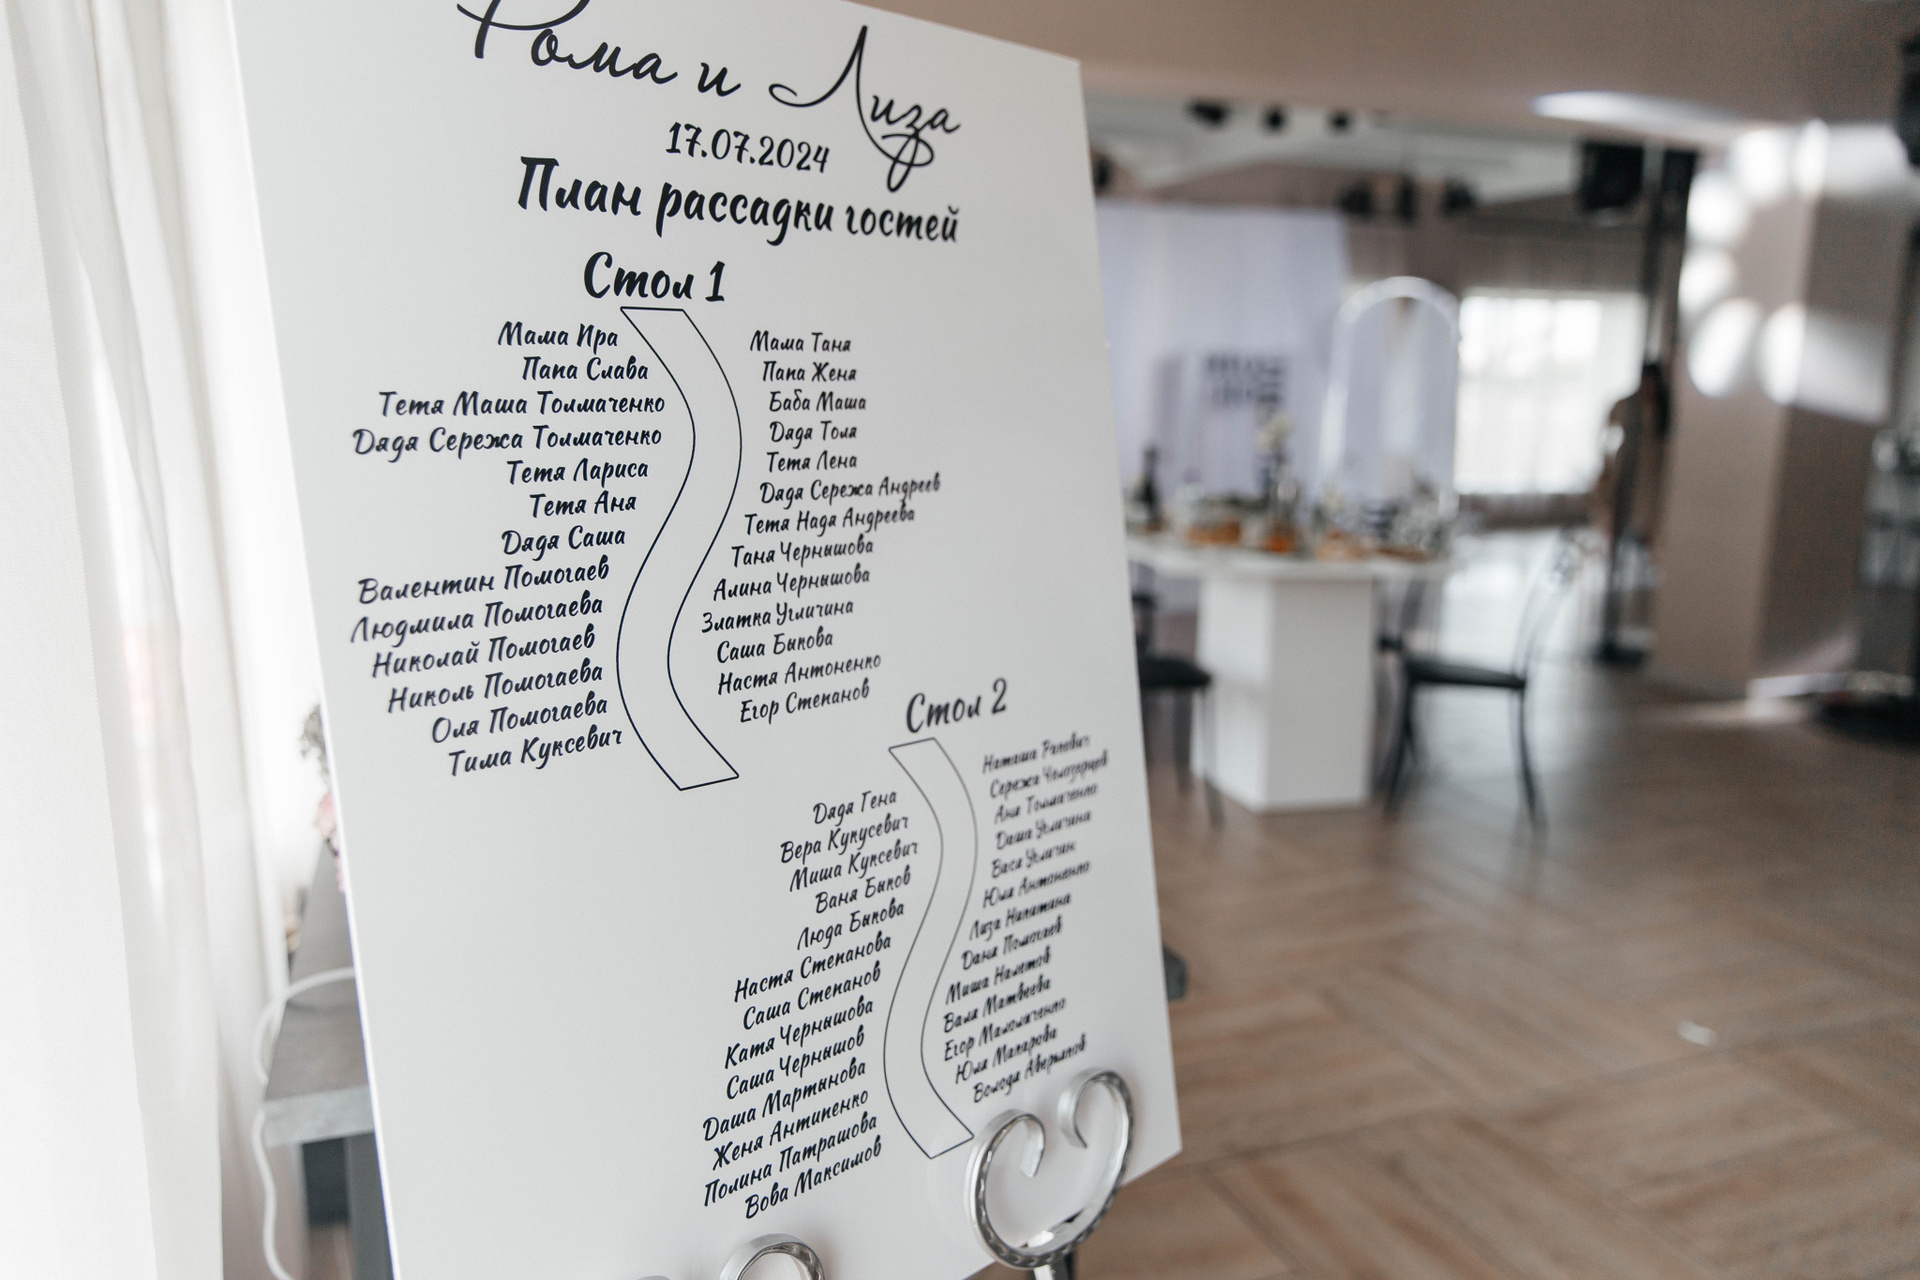 Рома и Лиза
17.07.2024
План рассадки гостей
Стол 1
Мама Ира
Папа Слава
Тетя Маша Толмаченко
Дядя Сережа Толмаченко
Тетя Лариса
Тетя Аня
Дядя Саша
Валентин Помогаев
Людмила Помогаева
Николай Помогаев
Николь Помогаева
Оля Помогаева
Тима Куксевич
Мама Таня
Папа Женя
Баба Маша
Дядя Толя
Тетя Лена
Дядя Сережа Андреев
Тетя Надя Андреева
Таня Чернышова
Алина Чернышова
Златка Угличина
Саша Быкова
Настя Антоненко
Егор Степанов
Стол 2
Дядя Гена
Вера Кукусевич
Миша Куксевич
Ваня Быков
Люда Быкова
Настя Степанова
Саша Степанов
Катя Чернышова
Саша Чернышов
Даша Мартынова
Женя Антипенко
Полина Патрашова
Вова Максимов
Наташа
Сережа
Аня Толмаченко
Даша Угличина
Вася Угличин
Юля Антоненко
Лиза Никитина
Даня Помогаев
Миша Налетов
Валя Матвеева
Егор
Юля Макарова
Володя Аверьянов